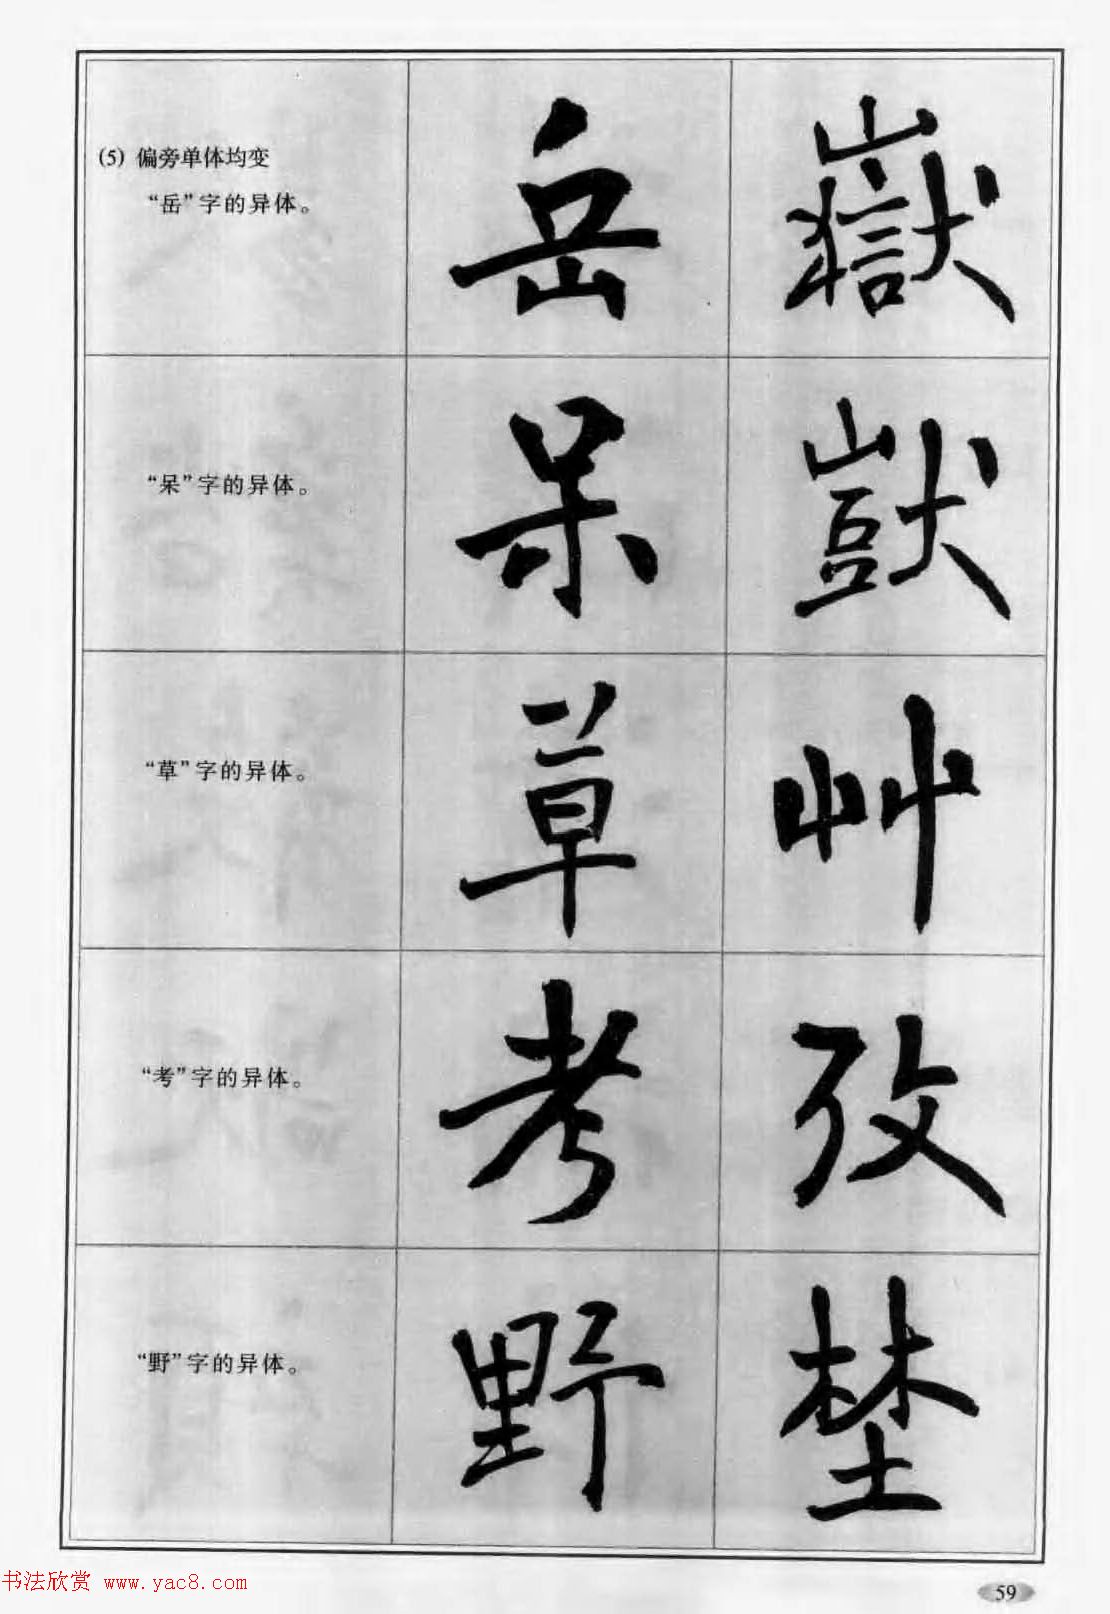 (5) 偏旁单体均变
“岳”字的异体。
岳 嶽
“呆”字的异体。
呆 獃
“草”字的异体。
草 艸
“考”字的异体。
考 攷
“野”字的异体。
野 埜
书法欣赏 www.yac8.com
59